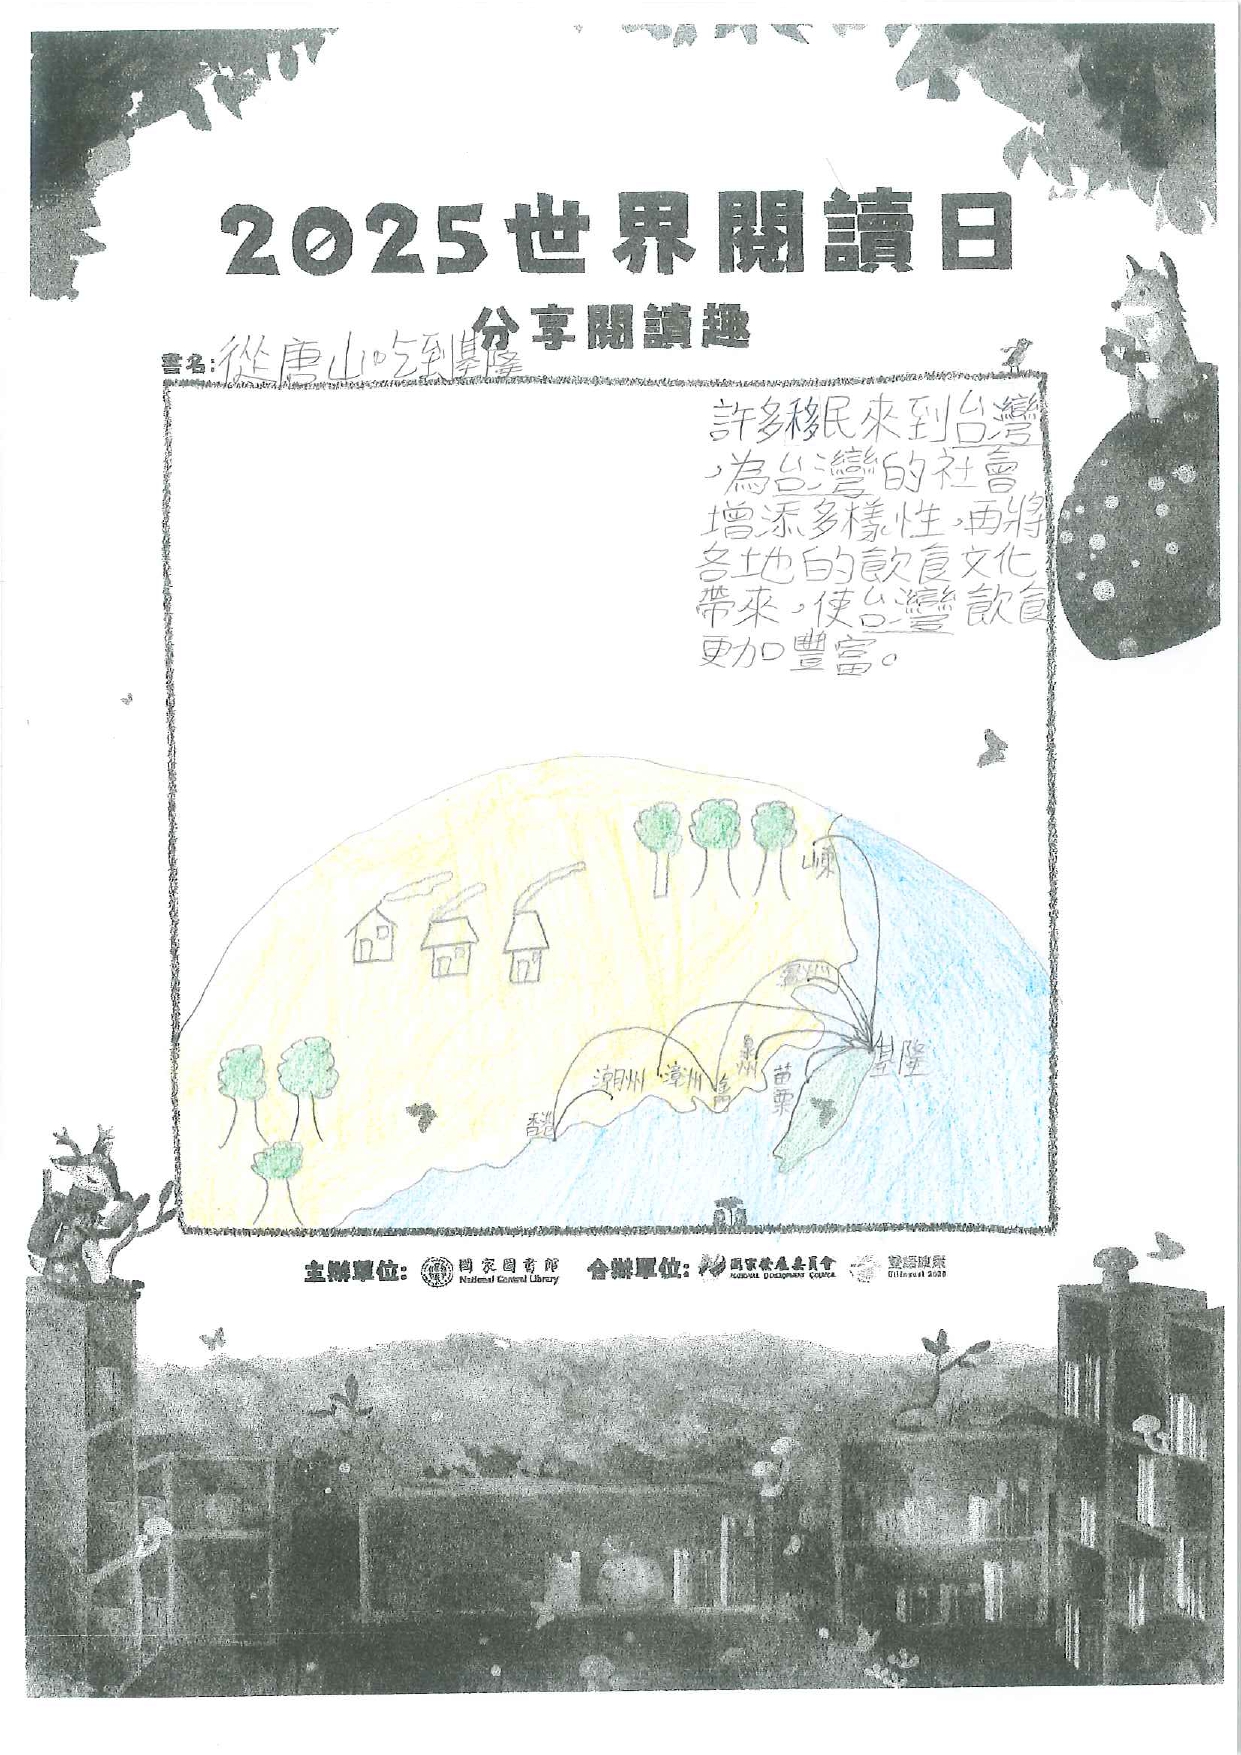 2025世界閱讀日
分享閱讀趣
書名:從唐山吃到基隆
許多移民來到台灣
,為台灣的社會
增添多樣性,再將
各地的飲食文化
帶來,使台灣飲食
更加豐富。
嵊
泉州
苗栗
基隆
潮州
漳州
金門
香港
主辦單位: 國家圖書館 合辦單位: 國家發展委員會 雙語政策
National Central Library NATIONAL DEVELOPMENT COUNCIL Bilingual 2030